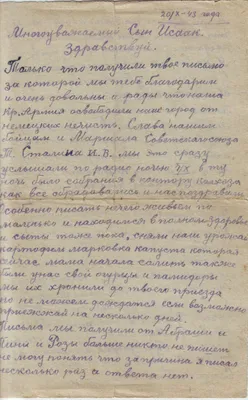 20/X-43 года
Многоуважаемий Сын Исаак.
Здравствуй.
Только что получили твое письмо
за которой мы тебе благодарим
и очень довольны и рады что наша
Кр. Армия освободила наш город от
немецких нечисть, Слава нашим
и Маршала Советского союза
т. Сталина И.В. мы это сразу
услышали по радио ночю в ту
ночь было собрания в контору Колхоза
как все обрадовались и
Особенно писать нечего живем по
малинько и находимся в полном здоров
сыты тоже пока, сняли наш урожай
картофелем марковка капуста которая
сейчас мама начала солить также
били у нас свой огурци и памидоры
мы их хронили до твоего приезда
но не можем дождатся если возможно
приезжай на несколько дней.
Письма мы получили от Абраши и
и Розы больше никто не пишет
не могу понять что за причина я писал
несколько раз а ответа нет.